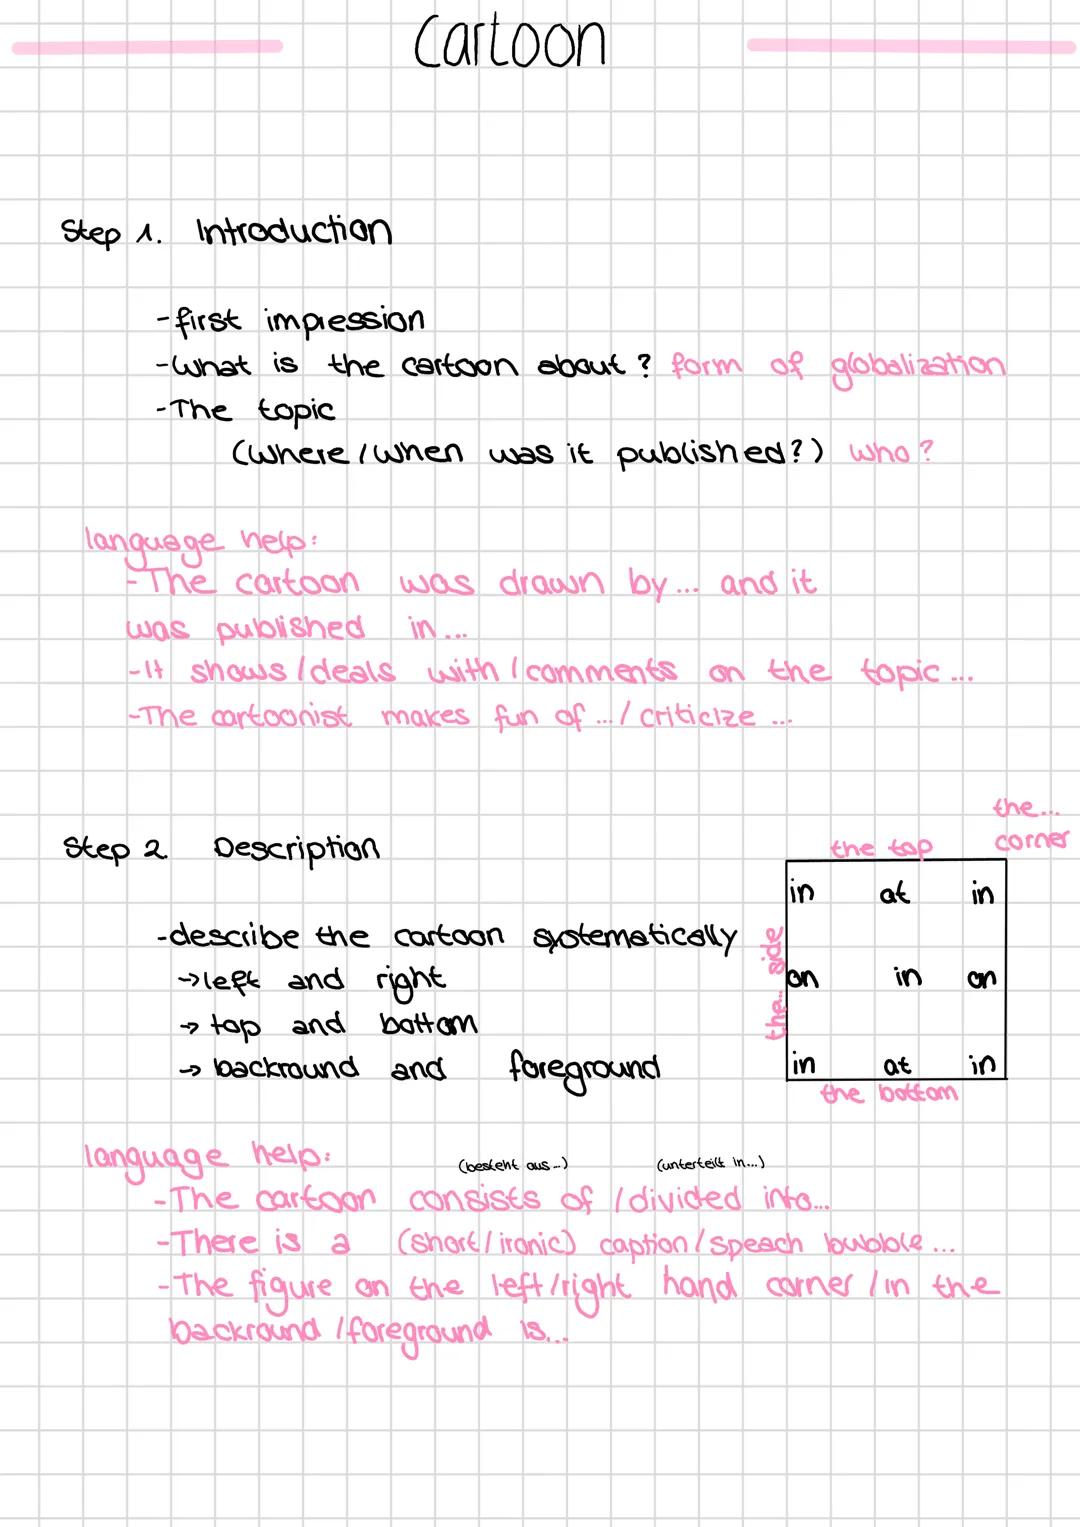 Cartoon
Step 1. Introduction
-first impression
-What is the cartoon about? form of globalization
-The topic
(Where/When was it published?) who?
language help:
-The cartoon was drawn by... and it
was published in...
-It shows/deals with/comments on the topic...
-The cartoonist makes fun of.../criticize ...
the...
corner
Step 2. Description
the top
in at in
-describe the cartoon systematically
the... side
→left and right
on in on
→ top and bottom
→ backround and foreground
in at in
the bottom
language help:
(besteht aus...) (unterteilt in...)
-The cartoon consists of /divided into...
-There is a (short/ironic) caption/speach bubble...
-The figure on the left/right hand corner /in the
backround /foreground is...